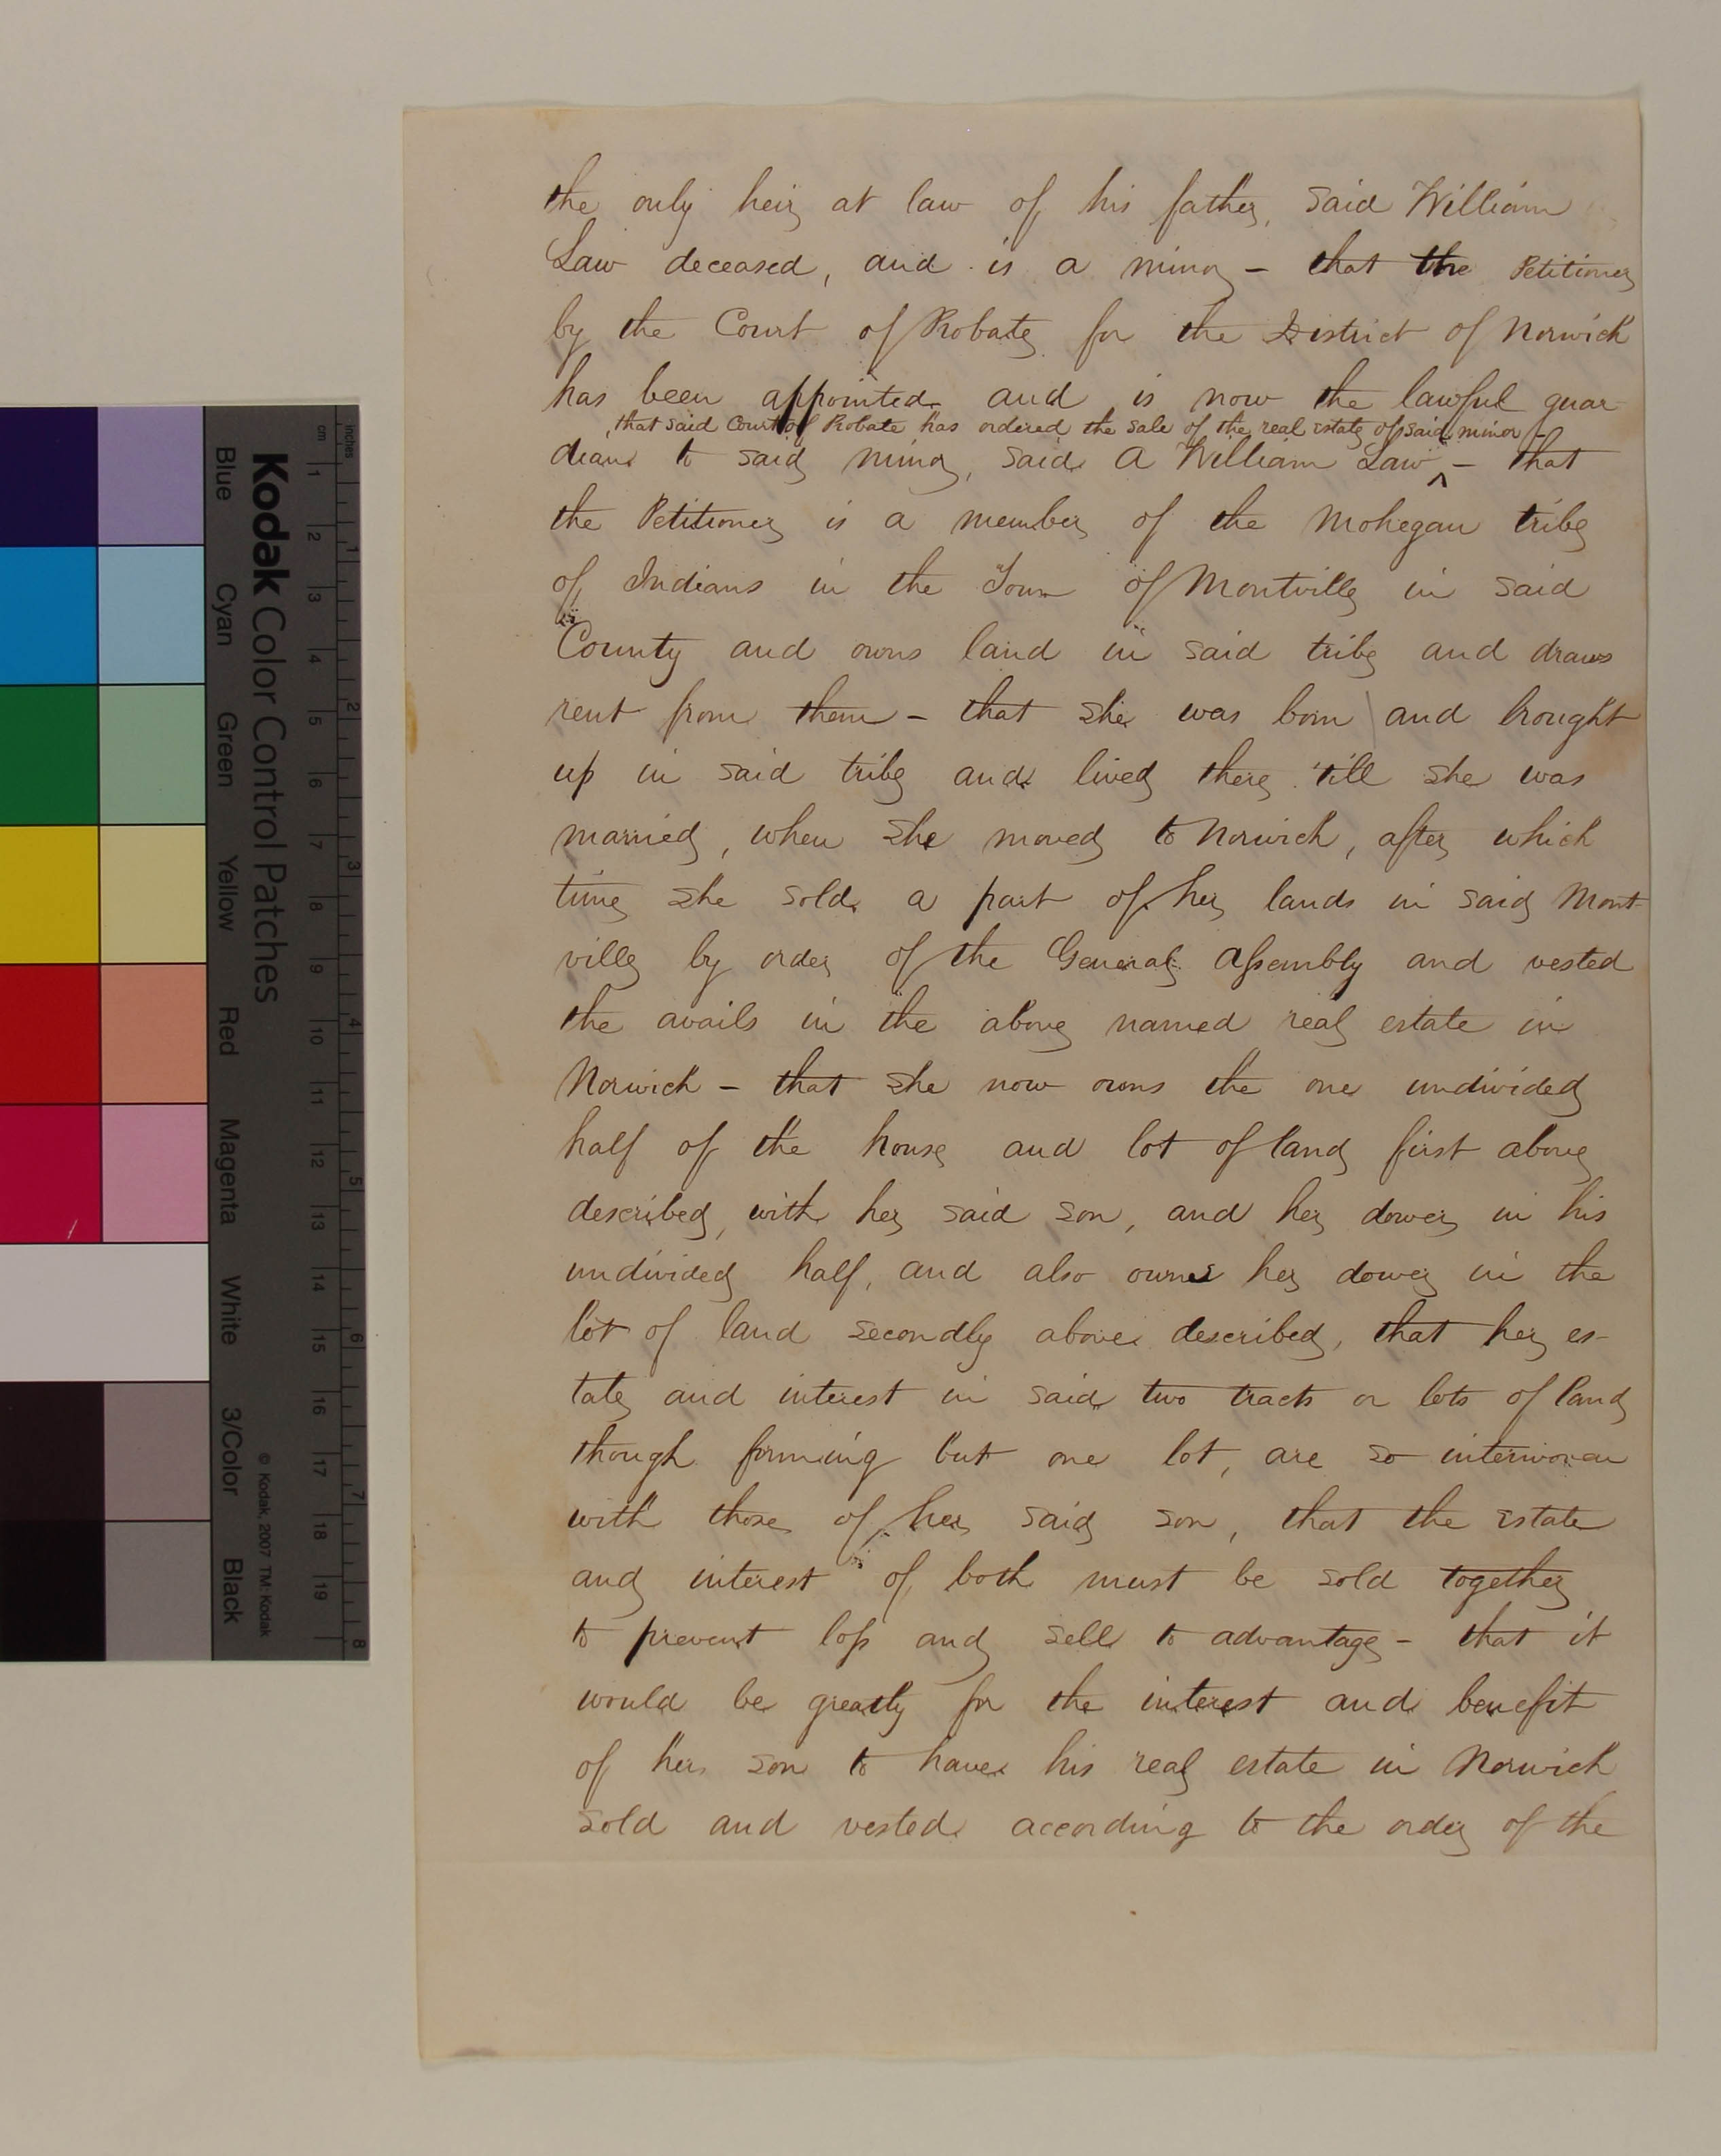 the only heir at law of his father, said William
Law deceased, and is a minor – that the Petitioner
by the Court of Probate for the District of Norwich
has been appointed and is now the lawful guar-
that said Court of Probate has ordered the sale of the real estate of said minor –
dian to said minor, said A William Law ^ – that
the Petitioner is a member of the Mohegan tribe
of Indians in the Town of Montville in said
County and owns land in said tribe and draws
rent from them – that she was born and brought
up in said tribe and lived there 'till she was
married, when she moved to Norwich, after which
time she sold a part of her lands in said Mont-
ville by order of the General Assembly and vested
the avails in the above named real estate in
Norwich – that she now owns the one undivided
half of the house and lot of land first above
described, with her said son, and her dower in his
undivided half, and also owns her dower in the
lot of land secondly above described, that her es-
tate and interest in said two tracts or lots of land
though forming but one lot, are so interwoven
with those of her said son, that the estate
and interest of both must be sold together
to prevent loss and sell to advantage – that it
would be greatly for the interest and benefit
of her son to have his real estate in Norwich
sold and vested according to the order of the
Kodak Color Control Patches
© Kodak, 2007 TM: Kodak
Blue Cyan Green Yellow Red Magenta White 3/Color Black
cm 1 2 3 4 5 6 7 8 9 10 11 12 13 14 15 16 17 18 19
inches 1 2 3 4 5 6 7 8